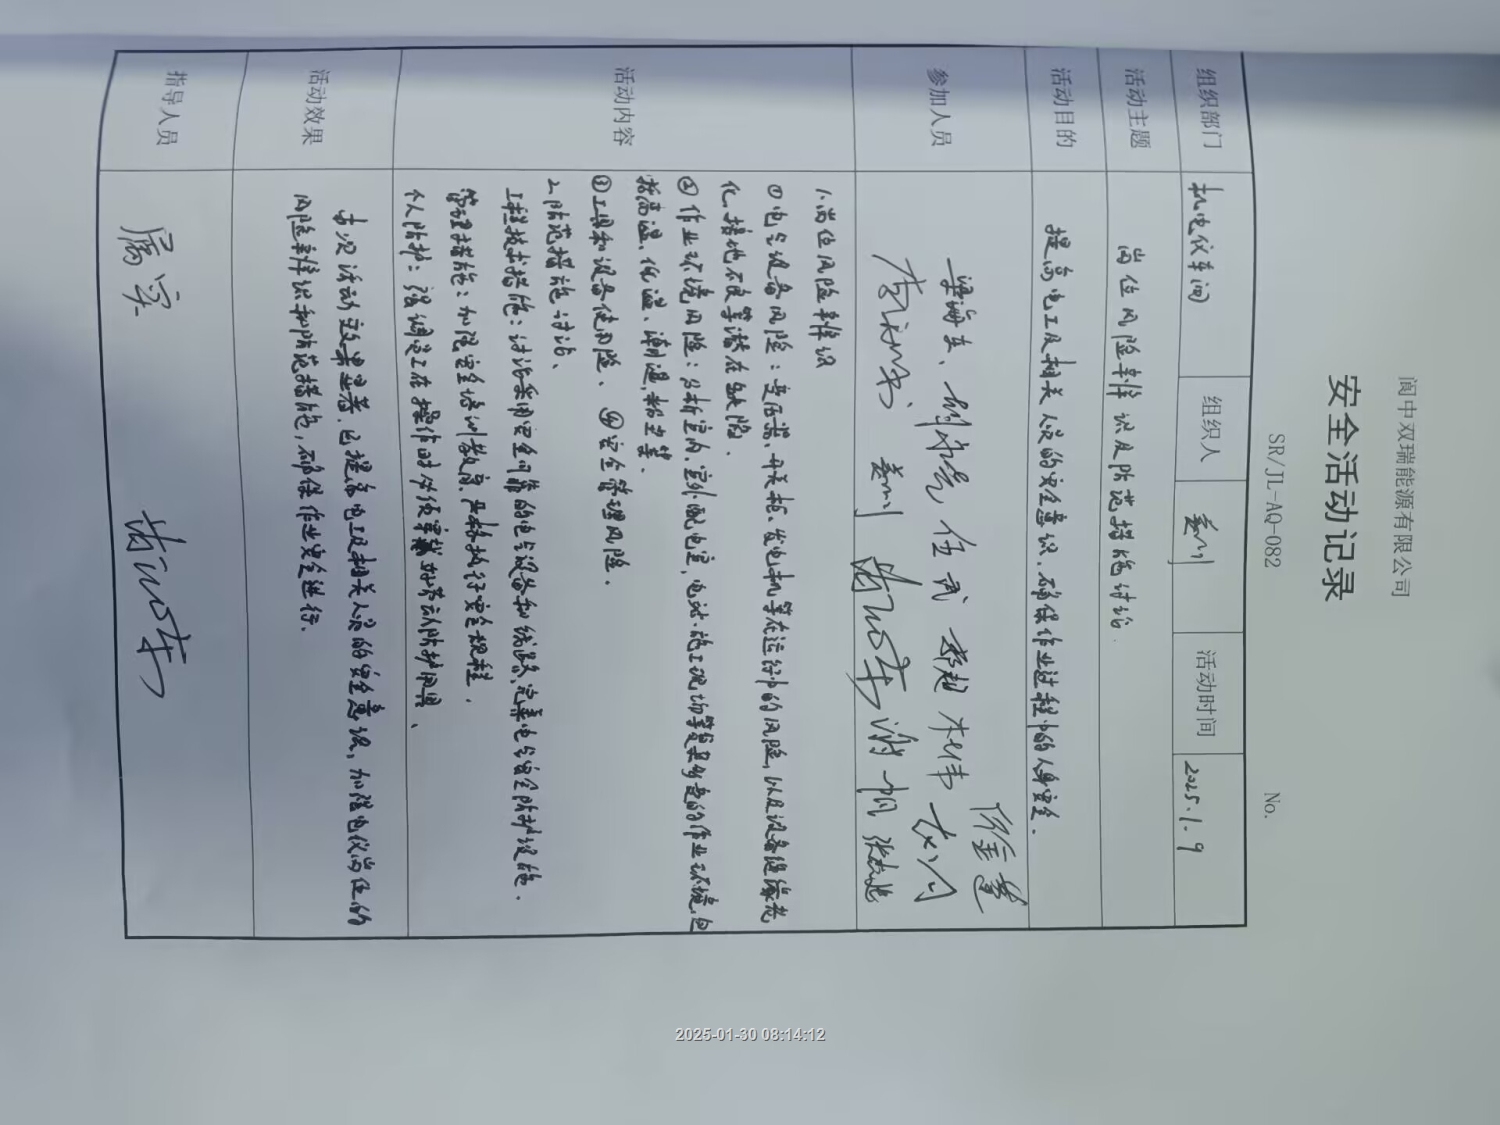 阆中双瑞能源有限公司
安全活动记录
SR/JL-AQ-082 No.
组织部门 机电仪车间 组织人 姜川 活动时间 2025.1.9
活动主题 岗位风险辩识及防范措施讨论.
活动目的 提高电工及相关人员的安全意识、确保作业过程中的人身安全.
参加人员
任武
活动内容
1.岗位风险辩识
①电气设备风险:变压器、开关柜、发电机等在运行中的风险,以及设备绝缘老
化、接地不良等潜在危险.
②作业环境风险:分析室内、室外、配电室、电站、施工现场等复杂多变的作业环境,包
括高温、低温、潮湿、粉尘等.
③工具和设备使用险、④安全管理风险.
2.防范措施讨论、
工程技术措施:讨论采用安全可靠的电气设备和线路、完善电气安全防护设施.
管理措施:加强安全培训教育、严格执行安全规程.
个人防护:强调员工在操作时必须穿戴好劳动防护用具、
活动效果
本次活动效果显著、已提高电工及相关人员的安全意识、加强电仪岗位的
风险辩识和防范措施,确保作业安全进行.
指导人员 属实
2025-01-30 08:14:12